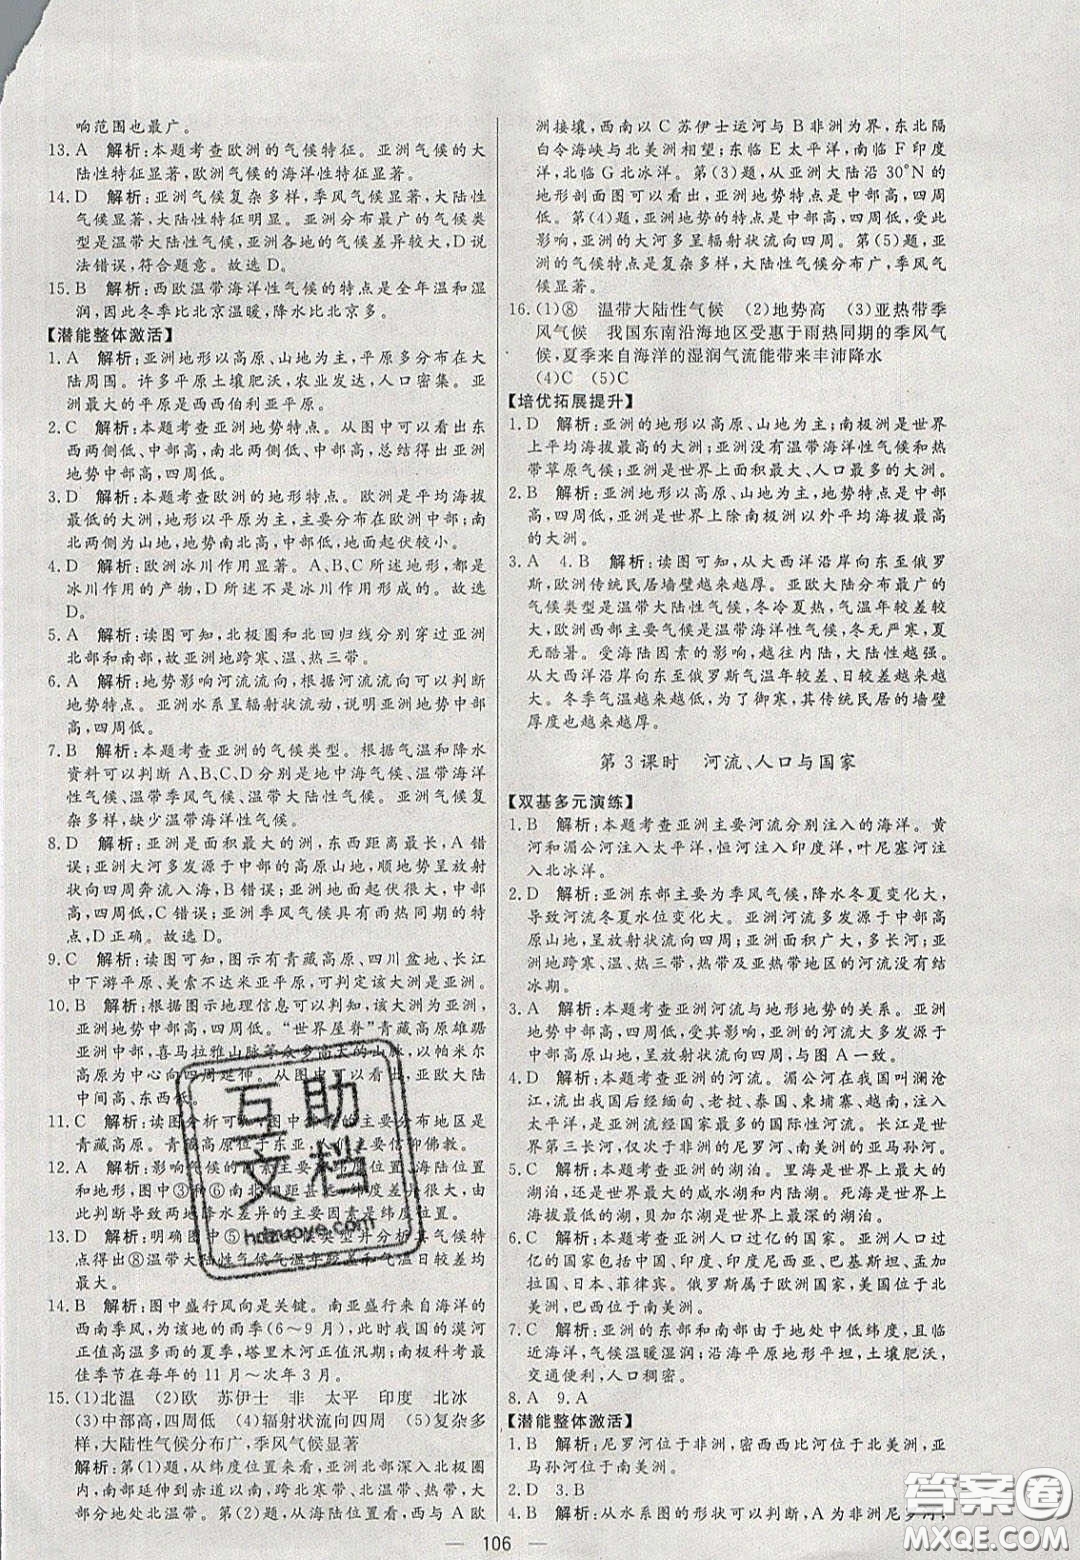 响范围也最广。
13.A 解析:本题考查欧洲的气候特征。亚洲气候的大
陆性特征显著,欧洲气候的海洋性特征显著。
14.D 解析:亚洲气候复杂多样,季风气候显著,大陆性
气候显著,大陆性特征明显。亚洲分布最广的气候类
型是温带大陆性气候,亚洲各地的气候差异较大,D说
法错误,符合题意。故选D。
15.B 解析:西欧温带海洋性气候的特点是全年温和湿
润,因此冬季比北京温暖,降水比北京多。
【潜能整体激活】
1.A 解析:亚洲地形以高原、山地为主,平原多分布在大
陆周围。许多平原土壤肥沃,农业发达,人口密集。亚
洲最大的平原是西西伯利亚平原。
2.C 解析:本题考查亚洲地势特点。从图中可以看出东
西两侧低、中部高,南北两侧低、中部高,总结得出亚洲
地势中部高,四周低。
3.D 解析:本题考查欧洲的地形特点。欧洲是平均海拔
最低的大洲,地形以平原为主,主要分布在欧洲中部;南
北两侧为山地,地势南北高,中部低,地面起伏较小。
4.D 解析:欧洲冰川作用显著。A、B、C所述地形都是
冰川作用的产物,D所述不是冰川作用形成的。故选
D。
5.A 解析:读图可知,北极圈和北回归线分别穿过亚洲
北部和南部,故亚洲地跨寒、温、热三带。
6.A 解析:地势影响河流流向,根据河流流向可以判断
地势特点。亚洲水系呈辐射状流动,说明亚洲地势中部
高,四周低。
7.B 解析:本题考查亚洲的气候类型。根据气温和降水
资料可以判断A、B、C、D分别是地中海气候、温带海洋
性气候、温带季风气候、温带大陆性气候。亚洲气候复
杂多样,缺少温带海洋性气候。
8.D 解析:亚洲是面积最大、东西距离最长,A错
误;亚洲大河多发源于中部的高原山地,顺地势呈放射
状向四周奔流入海,B错误;亚洲地面起伏很大,中部
高,四周低,C错误;亚洲季风气候具有雨热同期的特
点,D正确。故选D。
9.C 解析:读图可知,图示有青藏高原、四川盆地、长江
中下游平原、美索不达米亚平原,可判定该大洲是亚洲。
10.B 解析:根据图示地理信息可以判断,该大洲为亚洲,
亚洲地势中部高,四周低。“世界屋脊”青藏高原雄踞
亚洲中部,喜马拉雅山脉等众多高大的山脉,以帕米尔
高原为中心向四周延伸。从图中可以看出,亚欧大陆
中间高、东西低。
11.C 解析:读图分析可知,图中主要分布地区是
青藏高原。青藏高原位于东亚,人们主要信仰佛教。
12.A 解析:影响气候的因素主要有纬度位置、海陆位置
和地形,图中③和⑥南北相距甚远,纬度差异很大,由
此判断导致两地降水差异的主要因素是纬度位置。
13.D 解析:明确图中⑤气候类型并分析其气候特
点得出⑧温带大陆性气候气温年较差与气温日较差均
最大。
14.B 解析:图中盛行风向是关键。南亚盛行来自海洋的
西南季风,为该地的雨季(6～9月),此时我国的漠河
正值高温多雨的夏季,塔里木河正值汛期;南极科考最
佳季节在每年的11月～次年3月。
15.(1)北温 (2)欧 苏伊士 非 太平 印度 北冰
(3)中部高,四周低 (4)辐射状流向四周 (5)复杂多
样,大陆性气候分布广,季风气候显著
解析:第(1)题,从纬度位置来看,亚洲北部深入北极圈
内,南部延伸到赤道以南,跨北寒带、北温带、热带,大
部分地处北温带。第(2)题,从海陆位置来看,西与A欧
洲接壤,西南以C苏伊士运河与B非洲为界,东北隔
白令海峡与北美洲相望;东临E太平洋,南临F印度
洋,北临G北冰洋。第(3)题,从亚洲大陆沿30°N的
地形剖面图可以看出,亚洲地势特点是中部高,四周
低。第(4)题,亚洲地势的特点是中部高,四周低,受此
影响,亚洲的大河多呈辐射状流向四周。第(5)题,亚
洲的气候特点是复杂多样、大陆性气候分布广,季风气
候显著。
16.(1)⑧ 温带大陆性气候 (2)地势高 (3)亚热带季
风气候 我国东南沿海地区受惠于雨热同期的季风气
候,夏季来自海洋的湿润气流能带来丰沛降水
(4)C (5)C
【培优拓展提升】
1.D 解析:亚洲的地形以高原、山地为主;南极洲是世界
上平均海拔最高的大洲;亚洲没有温带海洋性气候和热
带草原气候;亚洲是世界上面积最大、人口最多的大洲。
2.B 解析:亚洲地形以高原、山地为主,地势特点是中部
高,四周低,亚洲是世界上除南极洲以外平均海拔最高
的大洲。
3.A 4.B 解析:读图可知,从大西洋沿岸向东至俄罗
斯,欧洲传统民居墙壁越来越厚。亚欧大陆分布最广的
气候类型是温带大陆性气候,冬冷夏热,气温年较差较
大,欧洲西部主要气候是温带海洋性气候,冬无严寒,夏
无酷暑。受海陆因素的影响,越往内陆,大陆性越强。
从大西洋沿岸向东至俄罗斯气温年较差、日较差越来越
大。冬季气温越来越低,为了御寒,其传统民居的墙壁
厚度也越来越厚。
第3课时 河流、人口与国家
【双基多元演练】
1.B 解析:本题考查亚洲主要河流分别注入的海洋。黄
河和湄公河注入太平洋,恒河注入印度洋,叶尼塞河注
入北冰洋。
2.D 解析:亚洲东部主要为季风气候,降水冬夏变化大,
导致河流冬夏水位变化大。亚洲河流多发源于中部高
原山地,呈放射状流向四周;亚洲内流区面积广大;亚洲
地跨寒、温、热三带,热带及亚热带地区的河流没有结
冰期。
3.A 解析:本题考查亚洲河流与地形地势的关系。亚洲
地势中部高,四周低,受其影响,亚洲的河流大多发源于
中部高原山地、呈放射状流向四周,与图A一致。
4.D 解析:本题考查亚洲的河流。湄公河在我国叫澜沧
江,流出我国后经缅甸、老挝、泰国、柬埔寨、越南,注入
太平洋,是亚洲流经国家最多的国际性河流。长江是世
界第三长河,仅次于非洲的尼罗河、南美洲的亚马孙河。
5.C 解析:本题考查亚洲的湖泊。里海是世界最大的湖
泊,还是世界最大的咸水湖和内陆湖。死海是世界上最
低的湖泊,贝加尔湖是世界上最深的湖泊。
6.C 解析:本题考查亚洲人口过亿的国家。亚洲人口过
亿的国家包括中国、印度、印度尼西亚、巴基斯坦、孟加
拉国、日本、菲律宾。俄罗斯属于欧洲国家,美国位于北
美洲,巴西位于南美洲。
7.C 解析:亚洲的东部和南部由于地处中低纬度,且临
近海洋,气候温暖湿润;沿海平原地形平坦,土壤肥沃,
交通便利,因此人口稠密。
8.A 9.A
【潜能整体激活】
1.B 解析:尼罗河位于非洲,密西西比河位于北美洲,亚
马孙河位于南美洲。
2.D 3.B
4.B 解析:从水系图的形状可以判断,A为非洲尼罗河,
106
互助
文档
hdzuoye.com
答案圈
MXQE.COM